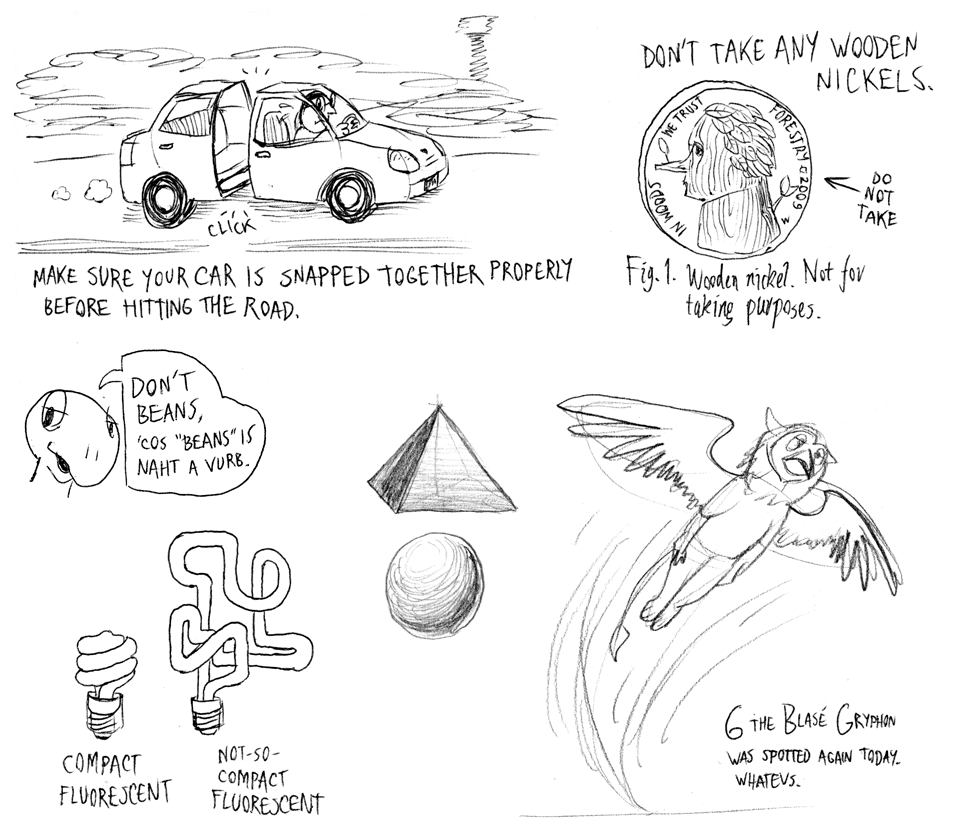 CLICK
MAKE SURE YOUR CAR IS SNAPPED TOGETHER PROPERLY
BEFORE HITTING THE ROAD.
DON'T TAKE ANY WOODEN
NICKELS.
IN WOODS WE TRUST FORESTRY 2009
DO
NOT
TAKE
Fig. 1. Wooden nickel. Not for
taking purposes.
DON'T
BEANS,
'COS "BEANS" IS
NAHT A VURB.
COMPACT
FLUORESCENT
NOT-SO-
COMPACT
FLUORESCENT
G THE BLASÉ GRYPHON
WAS SPOTTED AGAIN TODAY.
WHATEVS.